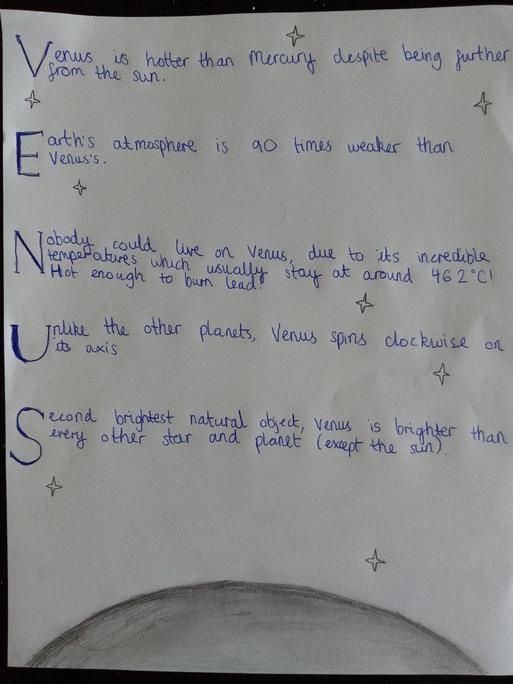 Venus is hotter than Mercury despite being further
from the sun.
Earth's atmosphere is 90 times weaker than
Venus's.
Nobody could live on Venus, due to its incredible
temperatures which usually stay at around 462°C!
Hot enough to burn lead!
Unlike the other planets, Venus spins clockwise on
its axis
Second brightest natural object, Venus is brighter than
every other star and planet (except the sun).